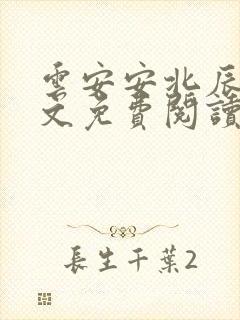 雲安安北辰
文免費閱讀
長生千葉2